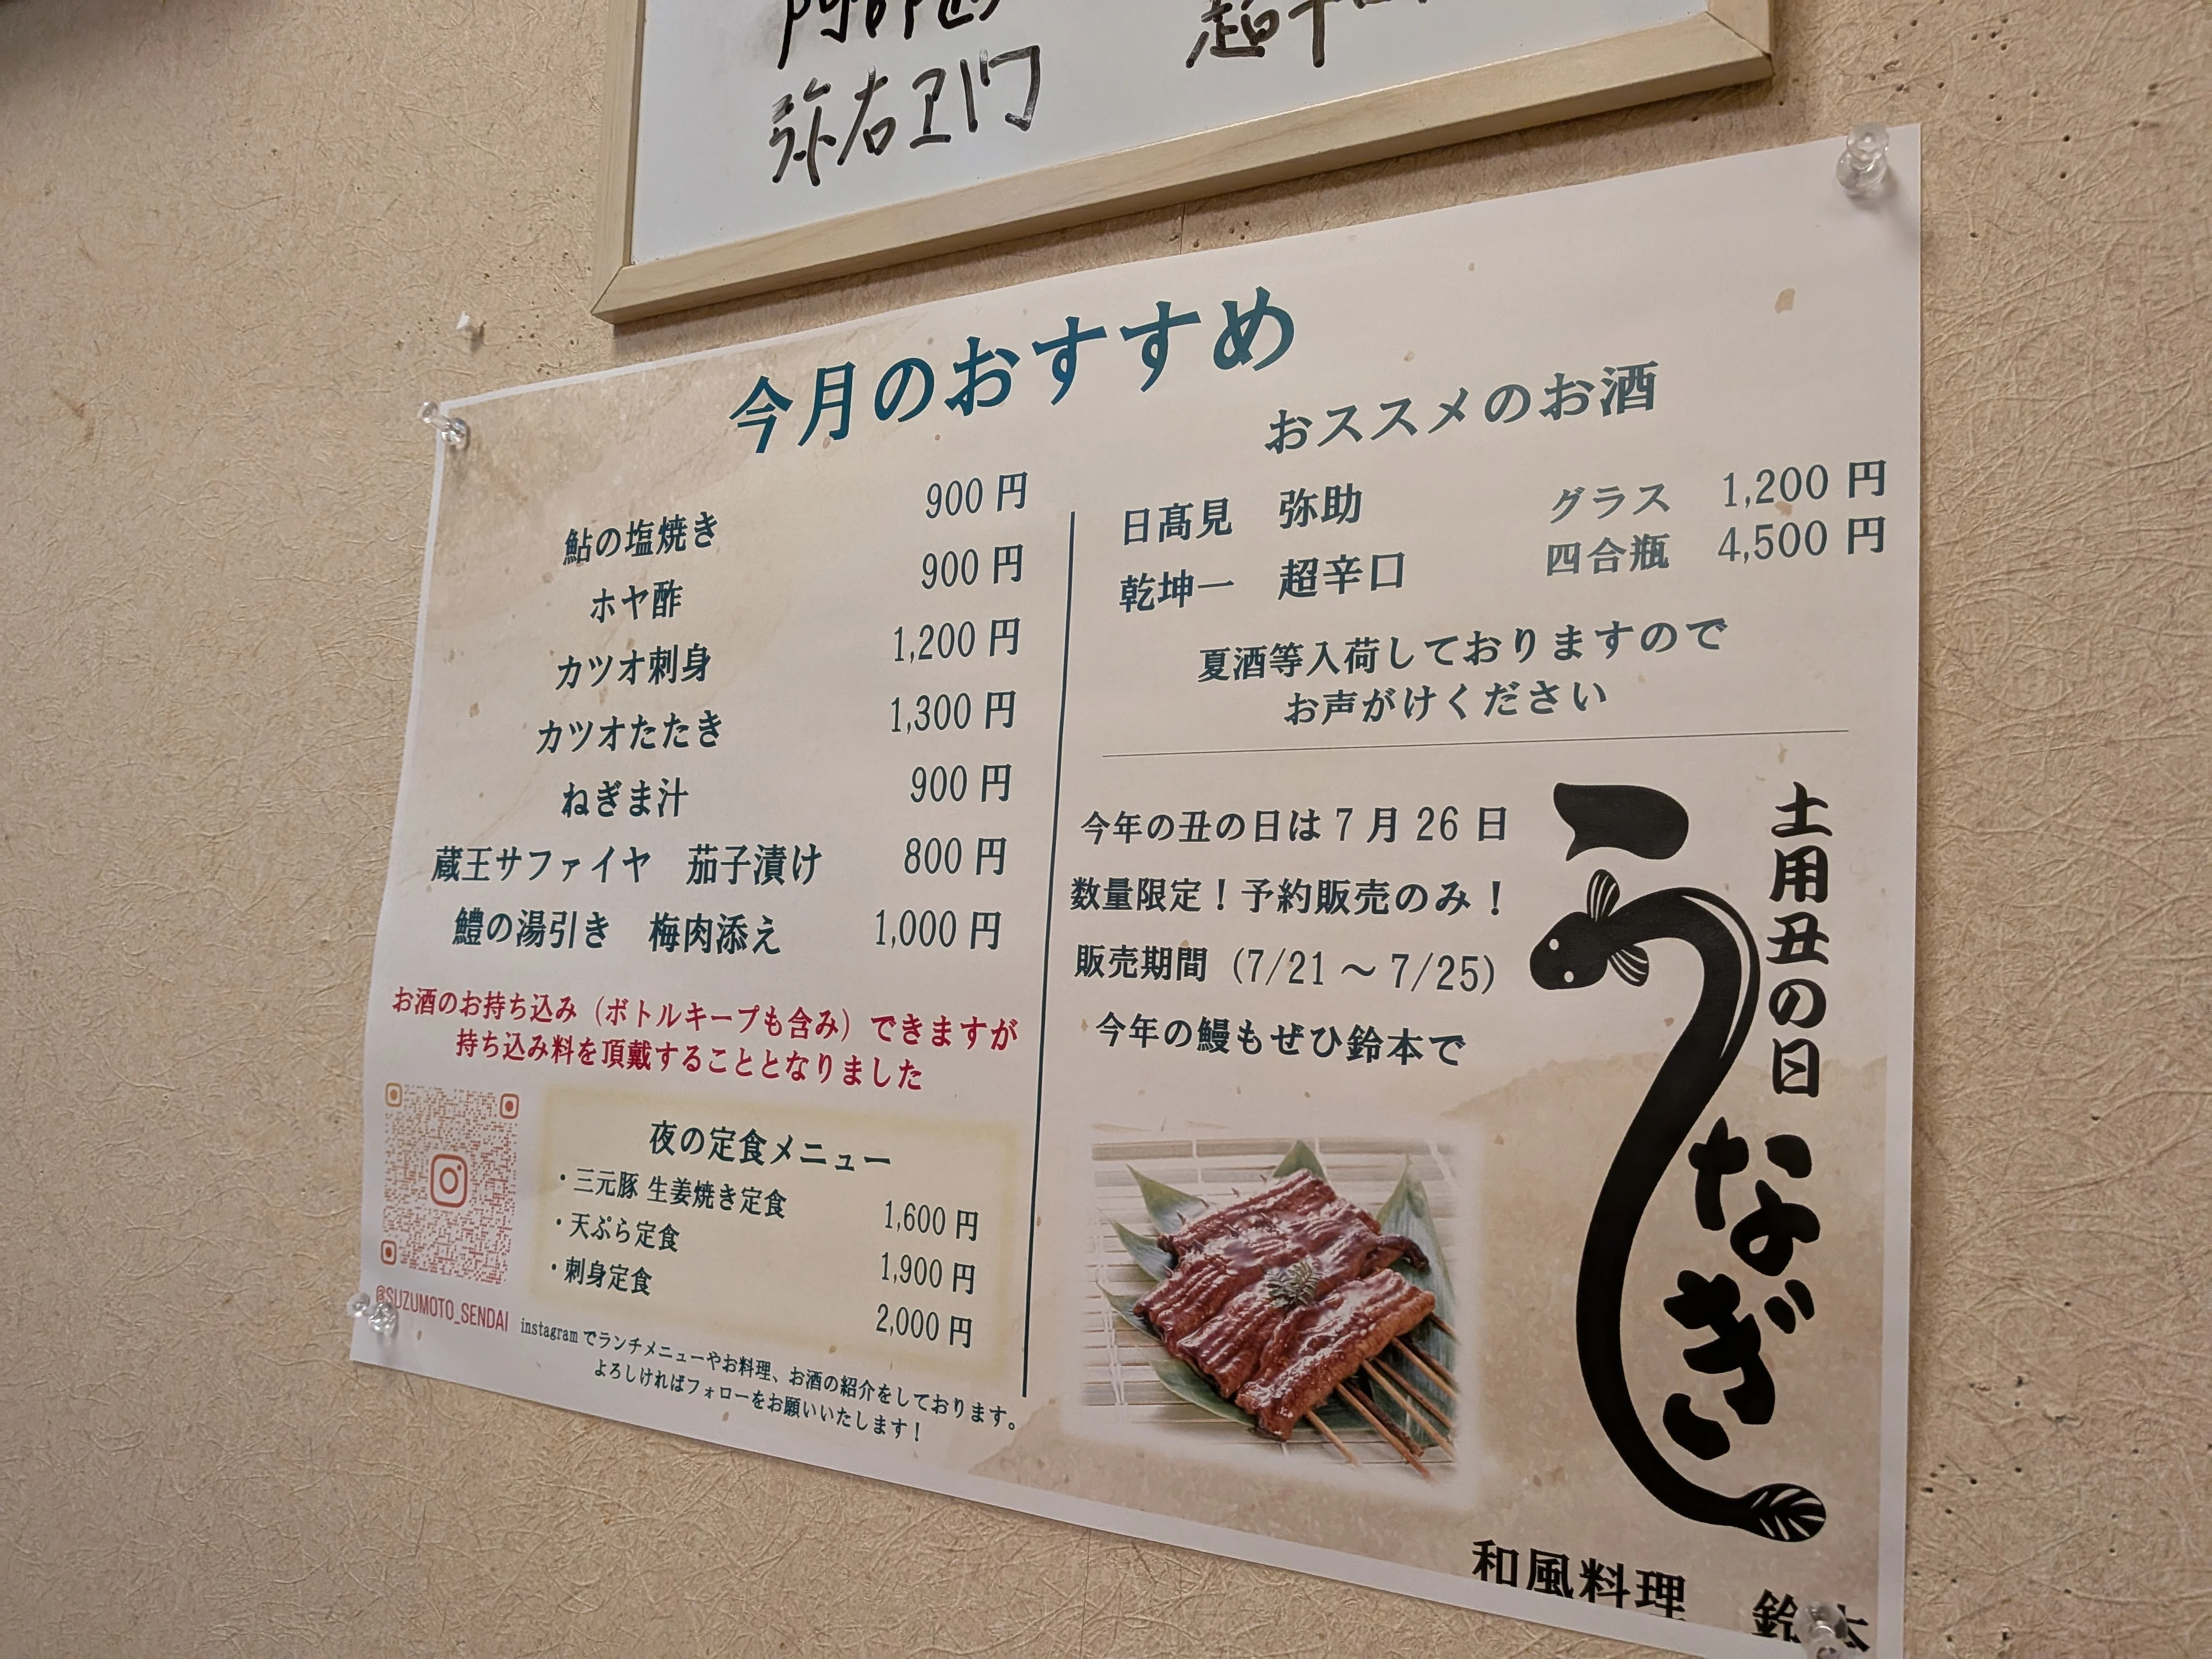 弥右エ門
今月のおすすめ
鮎の塩焼き 900円
ホヤ酢 900円
カツオ刺身 1,200円
カツオたたき 1,300円
ねぎま汁 900円
蔵王サファイヤ 茄子漬け 800円
鱧の湯引き 梅肉添え 1,000円
お酒のお持ち込み（ボトルキープも含み）できますが
持ち込み料を頂戴することとなりました
夜の定食メニュー
・三元豚 生姜焼き定食 1,600円
・天ぷら定食 1,900円
・刺身定食 2,000円
@SUZUMOTO_SENDAI
instagramでランチメニューやお料理、お酒の紹介をしております。
よろしければフォローをお願いいたします！
おススメのお酒
日髙見 弥助 グラス 1,200円
乾坤一 超辛口 四合瓶 4,500円
夏酒等入荷しておりますので
お声がけください
今年の丑の日は7月26日
数量限定！予約販売のみ！
販売期間（7/21～7/25）
今年の鰻もぜひ鈴本で
土用丑の日
うなぎ
和風料理 鈴本